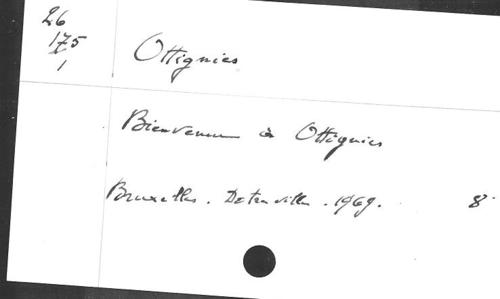 26
175
1
Ottignies
Bienvenue à Ottignies
Bruxelles. 1969. 8°